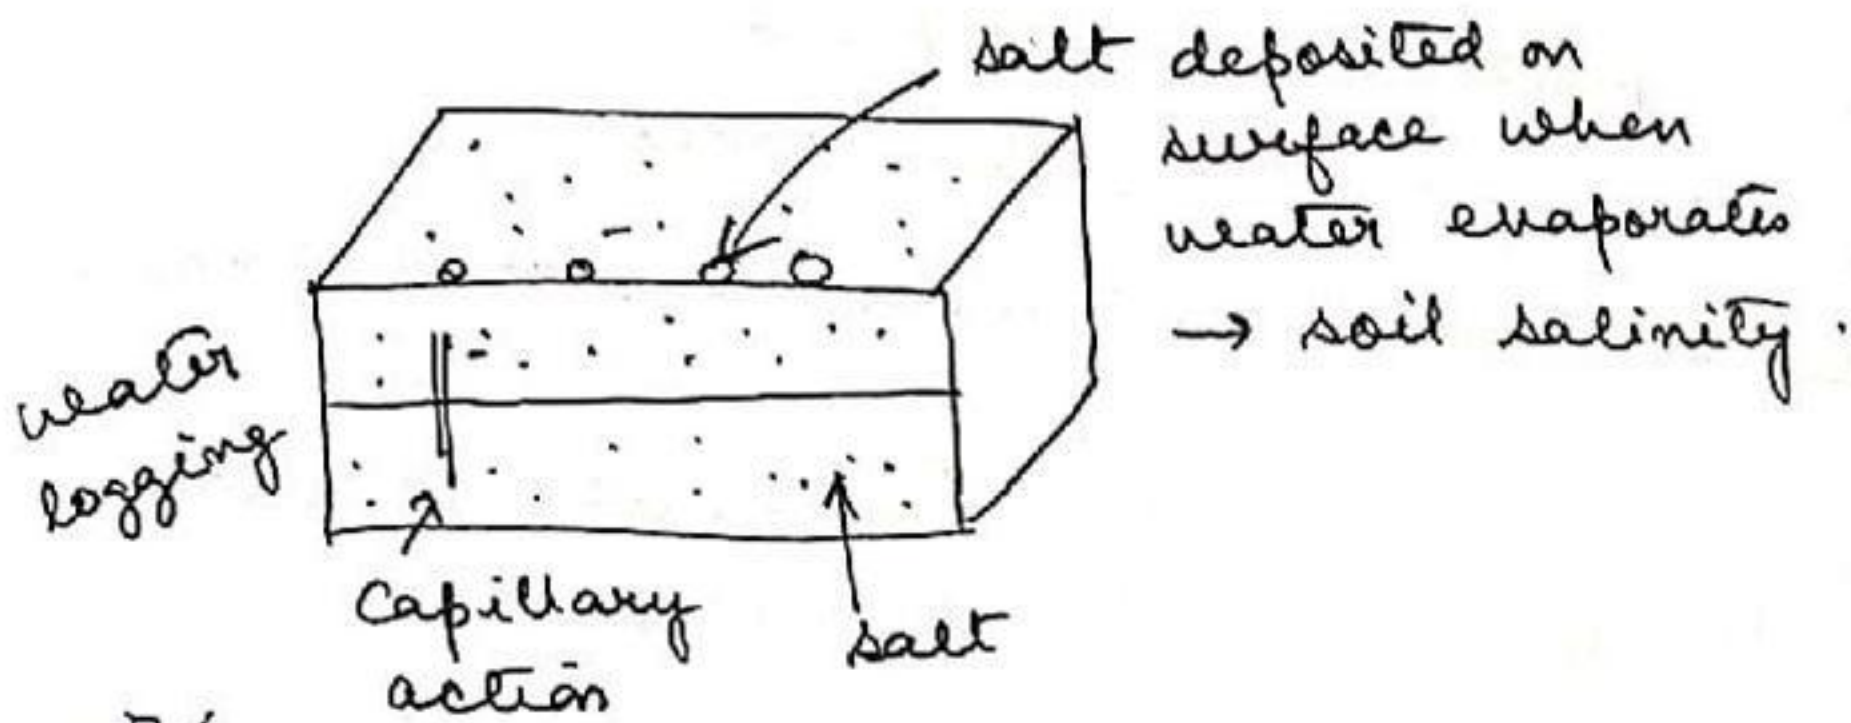 salt deposited on
surface when
water evaporates
→ soil salinity.
water
logging
Capillary
action
salt